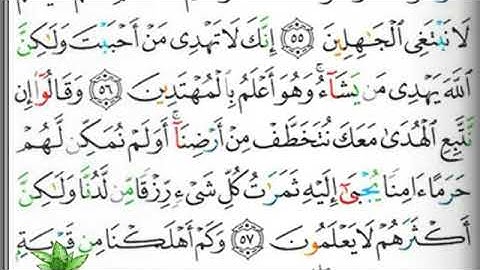 لَا نَبْتَغِى ٱلْجَٰهِلِينَ ۝٥٥ إِنَّكَ لَا تَهْدِى مَنْ أَحْبَبْتَ وَلَٰكِنَّ
ٱللَّهَ يَهْدِى مَن يَشَآءُ ۚ وَهُوَ أَعْلَمُ بِٱلْمُهْتَدِينَ ۝٥٦ وَقَالُوٓا۟ إِن
نَّتَّبِعِ ٱلْهُدَىٰ مَعَكَ نُتَخَطَّفْ مِنْ أَرْضِنَآ ۚ أَوَلَمْ نُمَكِّن لَّهُمْ
حَرَمًا ءَامِنًا يُجْبَىٰٓ إِلَيْهِ ثَمَرَٰتُ كُلِّ شَىْءٍ رِّزْقًا مِّن لَّدُنَّا وَلَٰكِنَّ
أَكْثَرَهُمْ لَا يَعْلَمُونَ ۝٥٧ وَكَمْ أَهْلَكْنَا مِن قَرْيَةٍۭ